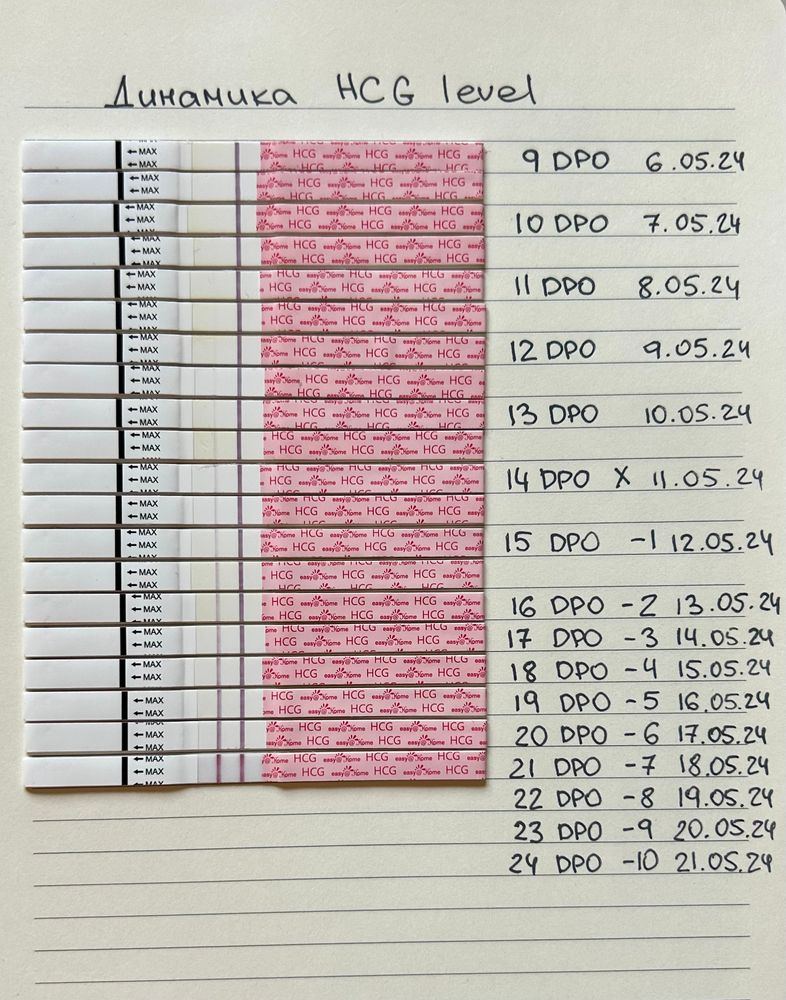 Динамика HCG level
9 DPO 6.05.24
10 DPO 7.05.24
11 DPO 8.05.24
12 DPO 9.05.24
13 DPO 10.05.24
14 DPO X 11.05.24
15 DPO -1 12.05.24
16 DPO -2 13.05.24
17 DPO -3 14.05.24
18 DPO -4 15.05.24
19 DPO -5 16.05.24
20 DPO -6 17.05.24
21 DPO -7 18.05.24
22 DPO -8 19.05.24
23 DPO -9 20.05.24
24 DPO -10 21.05.24
← MAX
← MAX
easy@Home HCG easy@Home HCG easy@Home HCG
HCG easy@Home HCG easy@Home HCG easy@Home